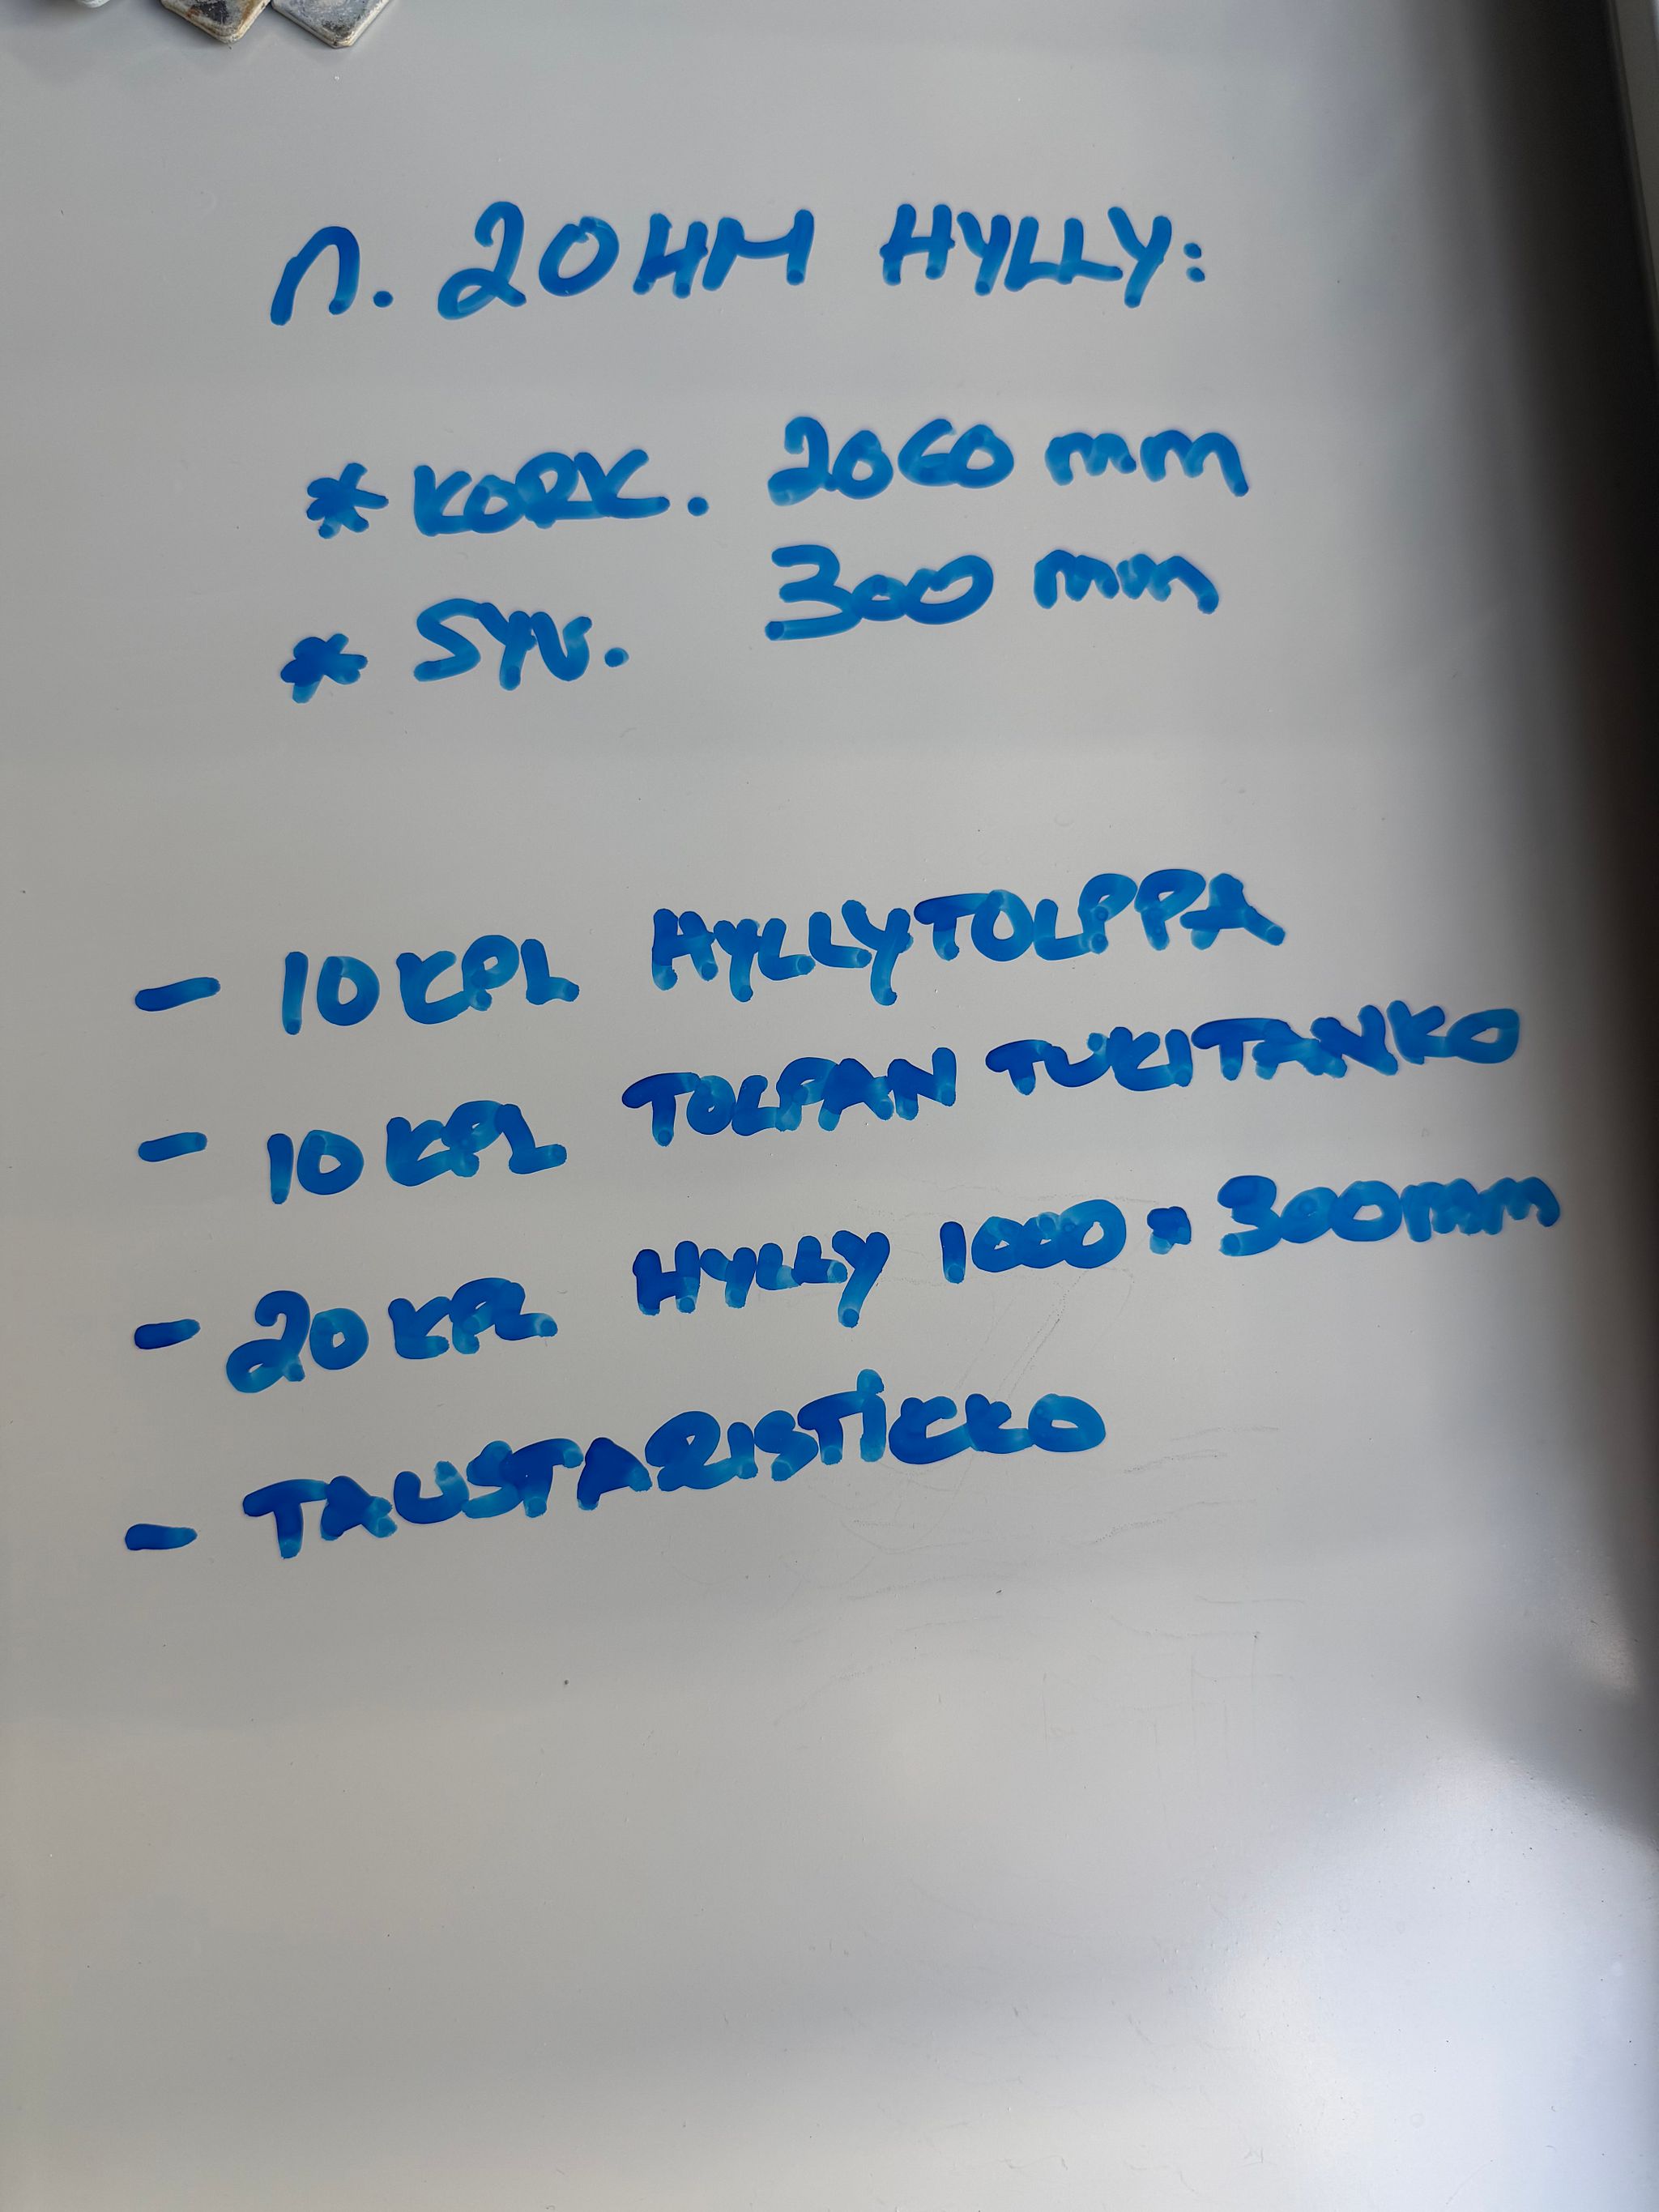 n. 20 HM HYLLY:
* KORK. 2060 mm
* SYV. 300 mm
- 10 KPL HYLLYTOLPPA
- 10 KPL TOLPAN TUKITANKO
- 20 KPL HYLLY 1000 * 300 mm
- TAUSTARISTIKKO